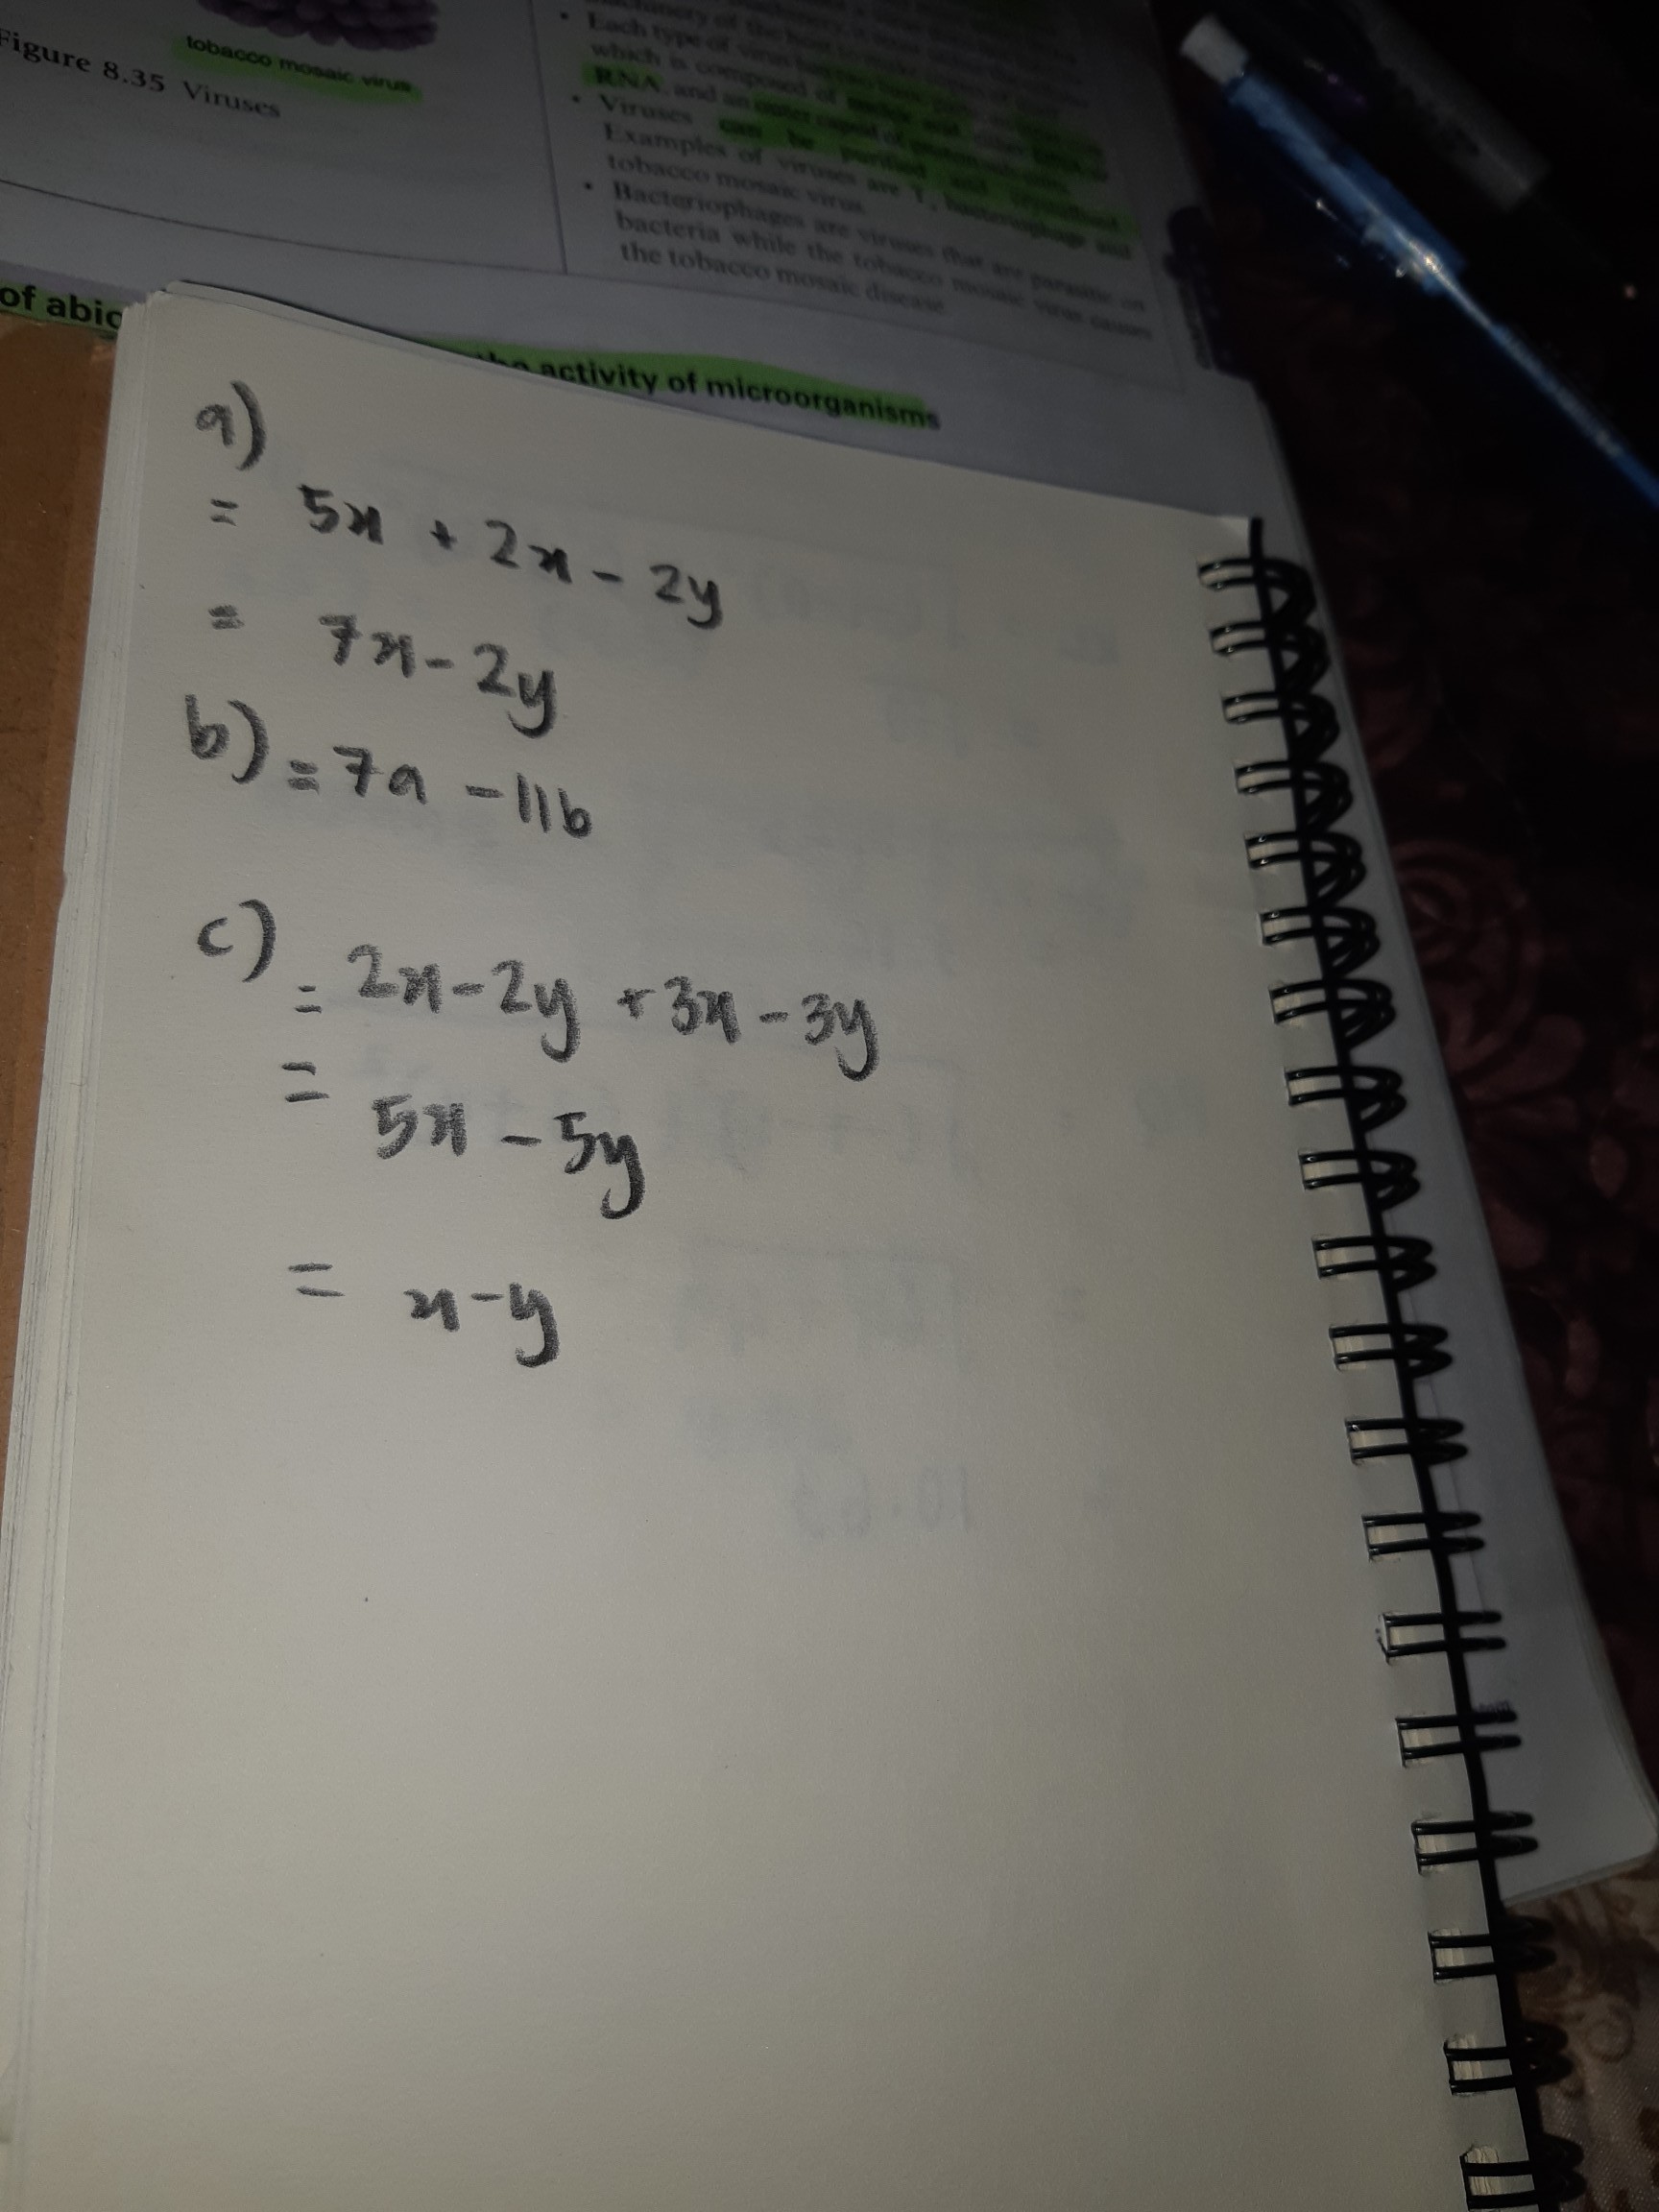 tobacco mosaic virus
Figure 8.35 Viruses
Each type of virus
which is composed of
RNA and an outer capsid of
Viruses can be purified and crystallised.
Examples of viruses are T, bacteriophage and
tobacco mosaic virus
Bacteriophages are viruses that are parasitic on
bacteria while the tobacco mosaic virus causes
the tobacco mosaic disease
of abio
the activity of microorganisms
a)
= 5x + 2x - 2y
= 7x - 2y
b) = 7a - 11b
c)
= 2x - 2y + 3x - 3y
= 5x - 5y
= x - y